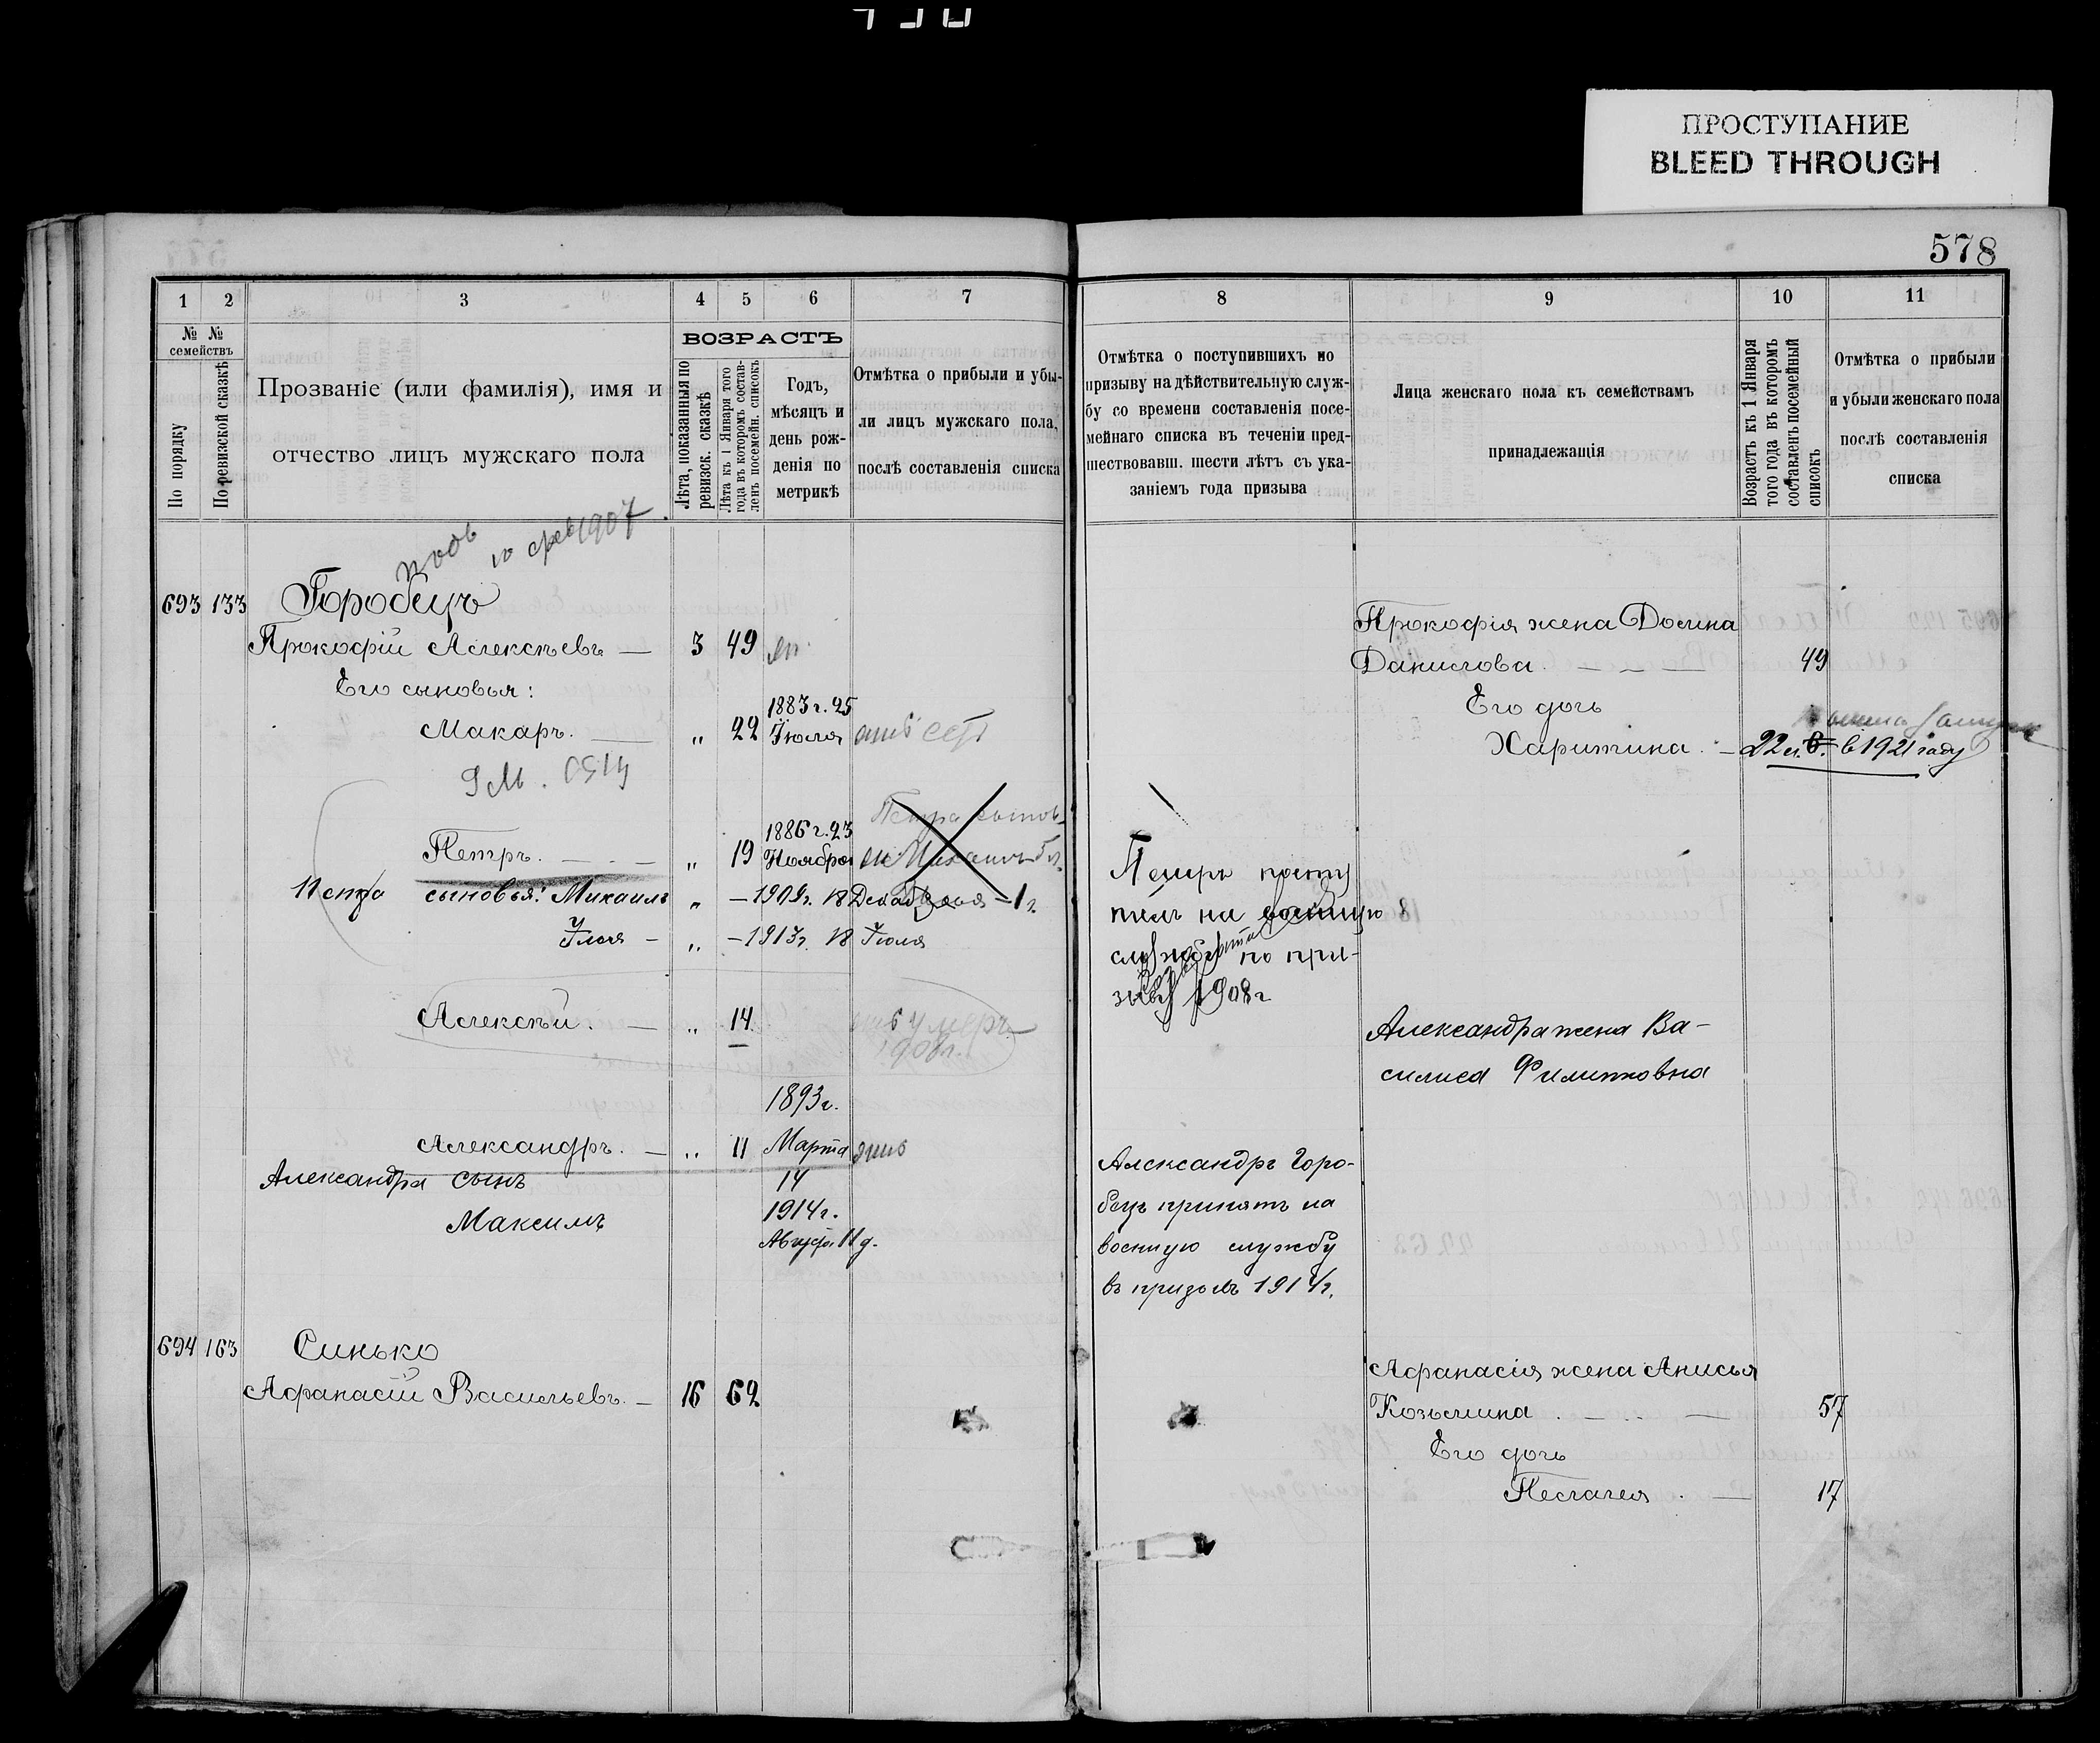 ПРОСТУПАНИЕ
BLEED THROUGH
578
1 2 3 4 5 6 7
№ № семействъ
По порядку
По ревизской сказкѣ
Прозваніе (или фамилія), имя и
отчество лицъ мужскаго пола
ВОЗРАСТЪ
Лѣта, показанныя по
ревизск. сказкѣ
Лѣта къ 1 Января того
года въ которомъ состав-
ленъ посемейн. списокъ
Годъ,
мѣсяцъ и
день рож-
денія по
метрикѣ
Отмѣтка о прибыли и убы-
ли лицъ мужскаго пола,
послѣ составленія списка
1907
693 133 Горобецъ
Прокофій Алексѣевъ — 3 49
Его сыновья:
Макаръ. — „ 22 1883 г. 25 Іюля
Петръ. — „ 19 1886 г. 23 Ноября
Петра сыновья: Михаилъ „ — 1909г. 18 Декаб
Илья — „ — 1913г. 18 Іюля
Алексѣй. — „ 14. умеръ
1908г.
1893г.
Александръ. — „ 11 Марта
14
Александра сынъ
Максимъ
1914г.
11 д.
694 163 Синько
Афанасій Васильевъ. — 16 62
8 9 10 11
Отмѣтка о поступившихъ по
призыву на дѣйствительную служ-
бу со времени составленія посе-
мейнаго списка въ теченіи пред-
шествовавш. шести лѣтъ съ ука-
заніемъ года призыва
Лица женскаго пола къ семействамъ
принадлежащія
Возрастъ къ 1 Января
того года въ которомъ
составленъ посемейный
списокъ
Отмѣтка о прибыли
и убыли женскаго пола
послѣ составленія
списка
Прокофія жена Домна
Данилова. — 49
Его дочь
Харитина. — 22 в 1921 году
Петръ посту
пилъ на военную
службу по при-
зыву 1908г
Александра жена Ва-
силиса Филипповна
Александръ Горо-
бецъ принятъ на
военную службу
въ призывъ 1914г.
Афанасія жена Анисья
Козьмина. — 57
Его дочь
Пелагея. — 17